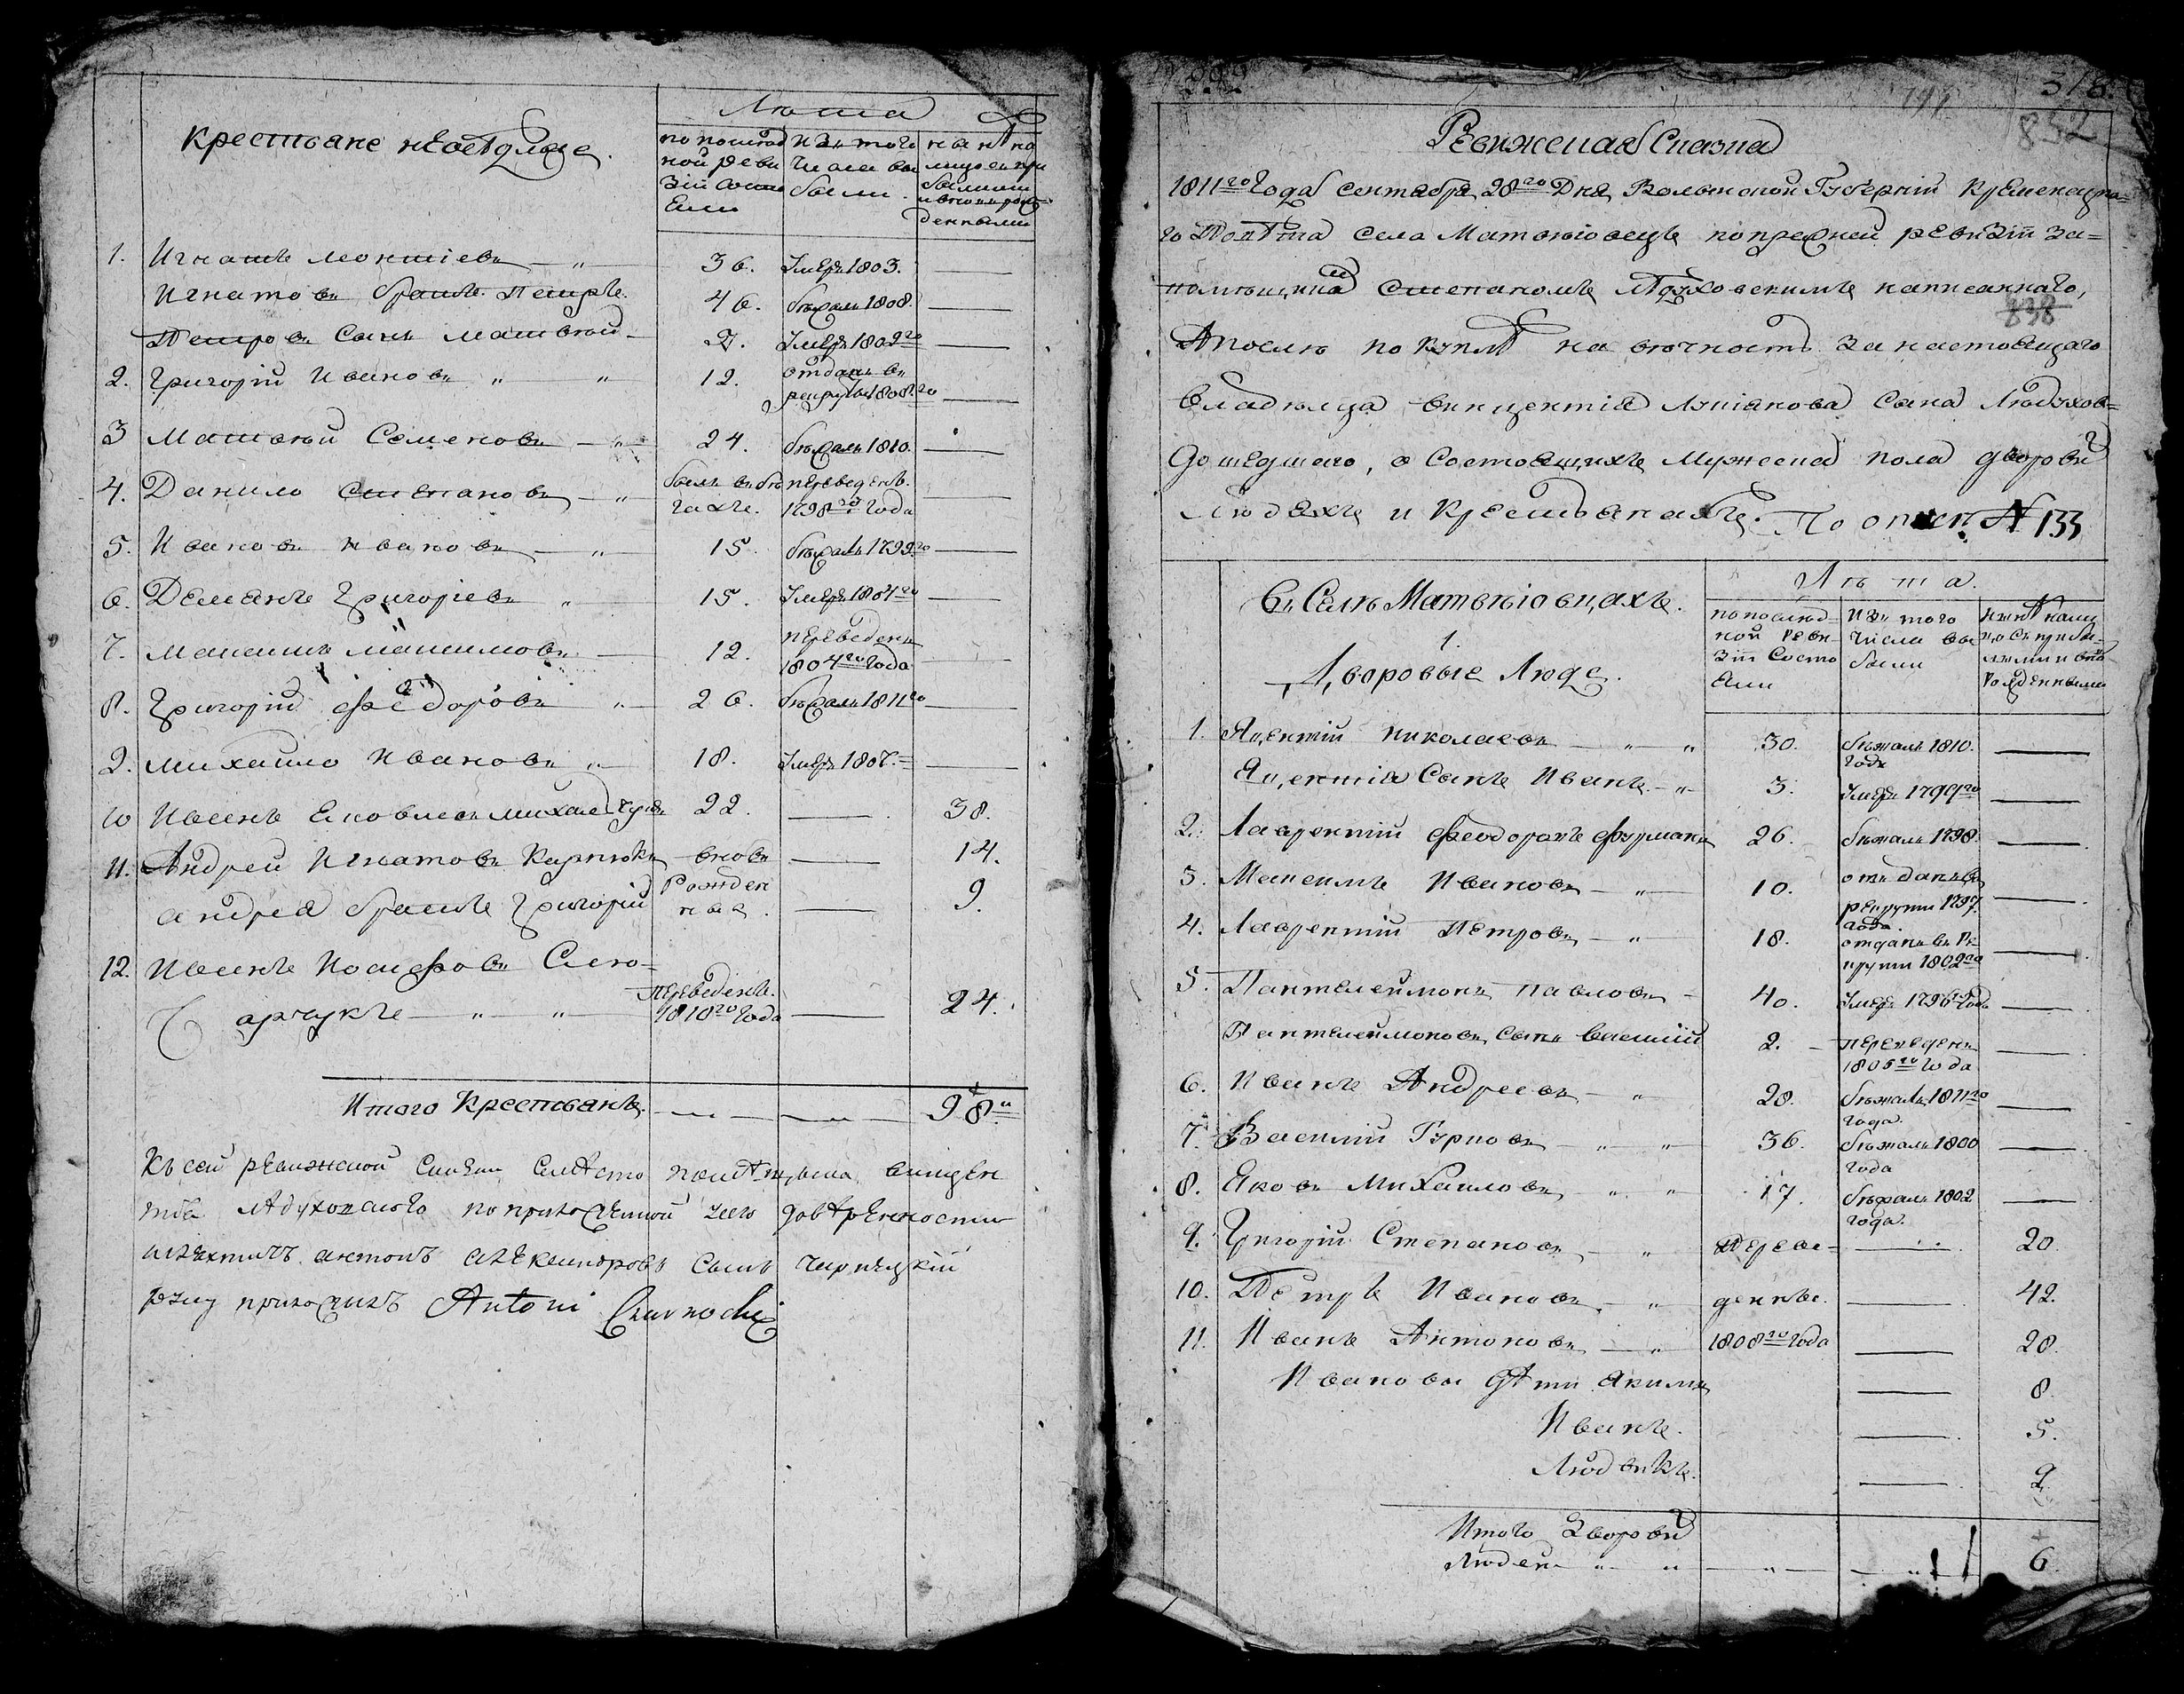 Крестьяне неоседлые.
Лѣта
по послѣд ной реви зіи состо яли
изъ того числа вы были
нынѣ на лицо
1. Игнатъ — „ 36. Умеръ 1803. —
Игнатовъ братъ Петръ. 46. бѣжалъ 1808. —
Петровъ сынъ Матвѣй — 2. Умеръ 1802го —
2. Григорій Ивановъ „ „ 12. отданъ въ рекруты 1808го —
3 Матвѣй Семеновъ — „ 24. бѣжалъ 1810. —
4. Данило Степановъ — „ былъ въ бѣ гахъ. переведенъ. 1798го года —
5. Ивановъ Ивановъ — „ 15. бѣжалъ 1799го —
6. Демянъ Григорьевъ „ 15. Умеръ 1804го —
7. Максимъ Максимовъ — 12. переведенъ 1804го года —
8. Григорій Федоровъ „ 26. бѣжалъ 1811го —
9. Михайло Ивановъ „ 18. Умеръ 1807. —
10 Иванъ Яковлевъ 22. — 38.
11. Андрей Игнатовъ Карпюкъ вновь — 14.
Андрея братъ Григорій рожден ныя. — 9.
12. Иванъ Иосифовъ Слю=
сарчукъ — „ — „ переведенъ. 1810го года — 24.
Итого Крестьянъ. — — 98
Къ сей ревижской сказки вмѣсто помѣщыка винцен
тія Лѣдуховского по прикосленной мнѣ довѣренности
шляхтичъ антонъ александровъ сынъ чарнецкій
руку приложилъ Antoni Czarnocki
299
318.
191.
832
Ревижская Сказка
1811го года сентября 28го дня Волынской Губерніи Кременецка=
го Повѣта села Матвѣіовецъ по прежней ревизіи за=
помѣщика Степаномъ Лѣдуховскимъ написанного,
838
А послѣ по куплѣ на вѣчность за настоящаго
владѣльца винцентія Лукіанова сына Лѣдухов=
дошедшаго, о состоящихъ мужеска пола дворовы
Людяхъ и Крестьянахъ. По описи № 133
Въ Селѣ Матвѣіовцахъ.
1.
Дворовые Люде.
Лѣта.
по послѣд= ной реви= зіи состо яли
изъ того числа вы были
нынѣ нали цо съ прибы= лыми и вновь рожденными
1. Яцентій Николаевъ — „ „ 30. бѣжалъ 1810. года —
Яцентія сынъ Иванъ — „ 3. Умеръ 1799го —
2. Лаврентій Феодоровъ Фурманъ 26. бѣжалъ 1798. —
3. Максимъ Ивановъ — „ 10. отъ данъ въ рекруты 1797. года. —
4. Лаврентій Петровъ — „ 18. отданъ въ ре= круты 1802го —
5. Пантелеймонъ Павловъ — 40. Умеръ 1796го года —
Пантелеймоновъ сынъ Василій 2. — переведенъ 1805го года —
6. Иванъ Андреевъ — „ 20. бѣжалъ 1811го года. —
7. Василій Гурковъ — „ „ 36. бѣжалъ 1800 года —
8. Яковъ Михаиловъ „ „ 17. бѣжалъ 1802 года. —
9. Григорій Степановъ — „ переве= — 20.
10. Петръ Ивановъ — „ денны. — 42.
11. Иванъ Антоновъ — „ 1808го года — 28.
Ивановы дѣти Якимъ — 8
Иванъ. — 5.
Людвикъ. — 2.
Итого Дворовы
Людей „ „ — „ — 6